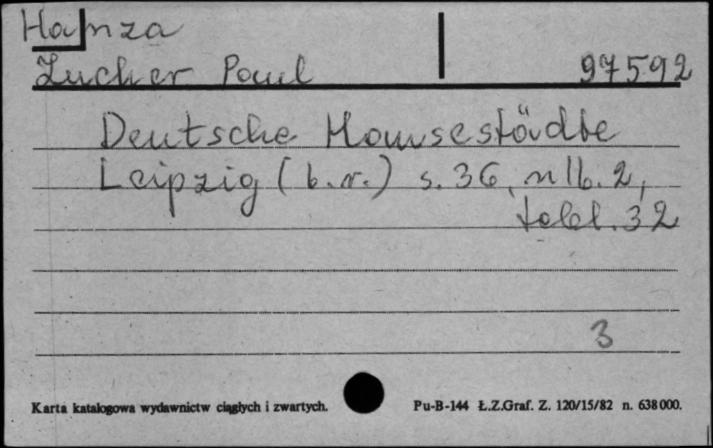 Hanza
Zucker Paul 97592
Deutsche Hansestädte
Leipzig (b.r.) s. 36, nlb. 2,
tabl. 32
3
Karta katalogowa wydawnictw ciągłych i zwartych.
Pu-B-144 Ł.Z.Graf. Z. 120/15/82 n. 638000.